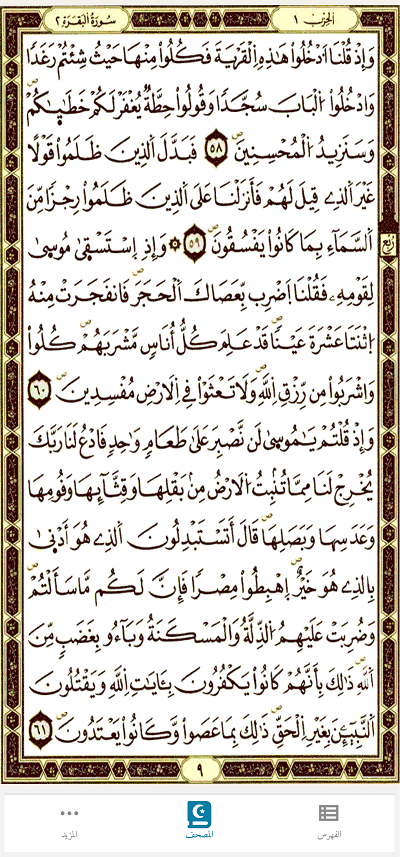 الحزب ١
سورة البقرة ٢
وَإِذْ قُلْنَا اَدْخُلُواْ هَٰذِهِ اِلْقَرْيَةَ فَكُلُواْ مِنْهَا حَيْثُ شِئْتُمْ رَغَدًا
وَادْخُلُواْ اُلْبَابَ سُجَّدًا وَقُولُواْ حِطَّةٌ يُغْفَرْ لَكُمْ خَطَٰيَٰكُمْ
وَسَنَزِيدُ اُلْمُحْسِنِينَ ۖ ٥٨ فَبَدَّلَ اَلذِينَ ظَلَمُواْ قَوْلًا
غَيْرَ اَلذِے قِيلَ لَهُمْ فَأَنزَلْنَا عَلَى اَلذِينَ ظَلَمُواْ رِجْزًا مِّنَ
اَلسَّمَآءِ بِمَا كَانُواْ يَفْسُقُونَ ۖ ٥٩ ۞ وَإِذِ اِسْتَسْقَىٰ مُوسَىٰ
ربع
لِقَوْمِهِۦ فَقُلْنَا اَضْرِب بِّعَصَاكَ اَلْحَجَرَ ۖ فَانفَجَرَتْ مِنْهُ
اُثْنَتَا عَشْرَةَ عَيْنًا ۖ قَدْ عَلِمَ كُلُّ أُنَاسٍ مَّشْرَبَهُمْ ۖ كُلُواْ
وَاشْرَبُواْ مِن رِّزْقِ اِللَّهِ ۖ وَلَا تَعْثَوْاْ فِے اِلْأَرْضِ مُفْسِدِينَ ۖ ٦٠
وَإِذْ قُلْتُمْ يَٰمُوسَىٰ لَن نَّصْبِرَ عَلَىٰ طَعَامٍ وَٰحِدٍ فَادْعُ لَنَا رَبَّكَ
يُخْرِجْ لَنَا مِمَّا تُنۢبِتُ اُلْأَرْضُ مِنۢ بَقْلِهَا وَقِثَّآئِهَا وَفُومِهَا
وَعَدَسِهَا وَبَصَلِهَا ۖ قَالَ أَتَسْتَبْدِلُونَ اَلذِے هُوَ أَدْنَىٰ
بِالذِے هُوَ خَيْرٌ ۖ اِهْبِطُواْ مِصْرًا فَإِنَّ لَكُم مَّا سَأَلْتُمْ ۖ
وَضُرِبَتْ عَلَيْهِمُ اُلذِّلَّةُ وَالْمَسْكَنَةُ وَبَآءُو بِغَضَبٍ مِّنَ
اَللَّهِ ۖ ذَٰلِكَ بِأَنَّهُمْ كَانُواْ يَكْفُرُونَ بِـَٔايَٰتِ اِللَّهِ وَيَقْتُلُونَ
اَلنَّبِيٓـِٕۧنَ بِغَيْرِ اِلْحَقِّ ۖ ذَٰلِكَ بِمَا عَصَواْ وَّكَانُواْ يَعْتَدُونَ ۖ ٦١
٩
الفهرس
المصحف
المزيد